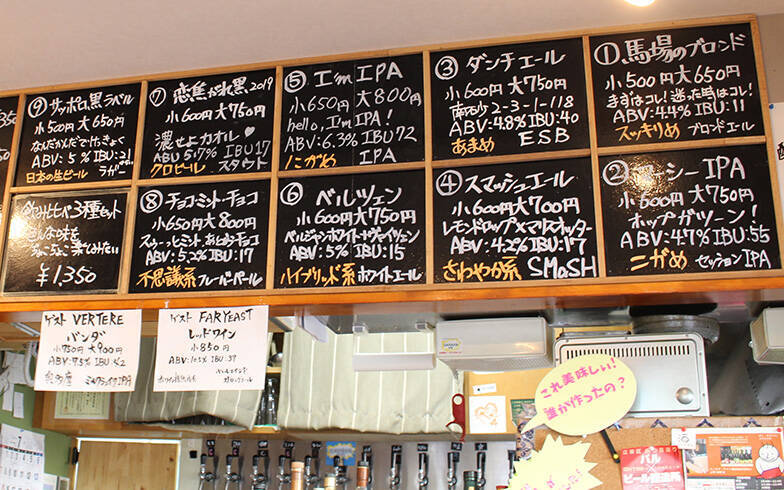 ①馬場のブロンド
小500円 大650円
まずはコレ!迷った馬はコレ!
ABV:4.4% IBU:11
スッキリめ ブロンドエール
②ーシーIPA
小600円 大750円
ホップガツーン!
ABV:4.7% IBU:55
にがめ セッションIPA
③ダンチエール
小600円 大750円
南砂2-3-1-118
ABV:4.8% IBU:40
あまめ ESB
④スマッシュエール
小600円 大700円
レモンドロップ×マリスオッター
ABV:4.2% IBU:17
さわやか系 SMaSH
⑤I'm IPA
小650円 大800円
hello, I'm IPA!
ABV:6.3% IBU72
にがめ IPA
⑥ベルツェン
小600円 大750円
ベルジャンホワイト×ヴァイツェン
ABV:5% IBU:15
ハイブリッド系 ホワイトエール
⑦恋焦がれ黒2019
小600円 大750円
濃せよカオル♥
ABV 5.7% IBU17
クロビール スタウト
⑧チョコ・ミント・チョコ
小650円 大800円
スゥーっとミント あとからチョコ
ABV:5.2% IBU:17
不思議系 フレーバーペール
⑨サッポロ黒ラベル
小500円 大650円
なんだかんだでけっきょく
ABV:5% IBU:21
日本の生ビール ラガー
3種セット
¥1,350
ゲスト VERTERE
パンダ
小750円 大900円
ABV:7.5%
ゲスト FAR YEAST
レッドワイン
小850円
これ美味しい!
誰が作ったの?
バル
ビール醸造所